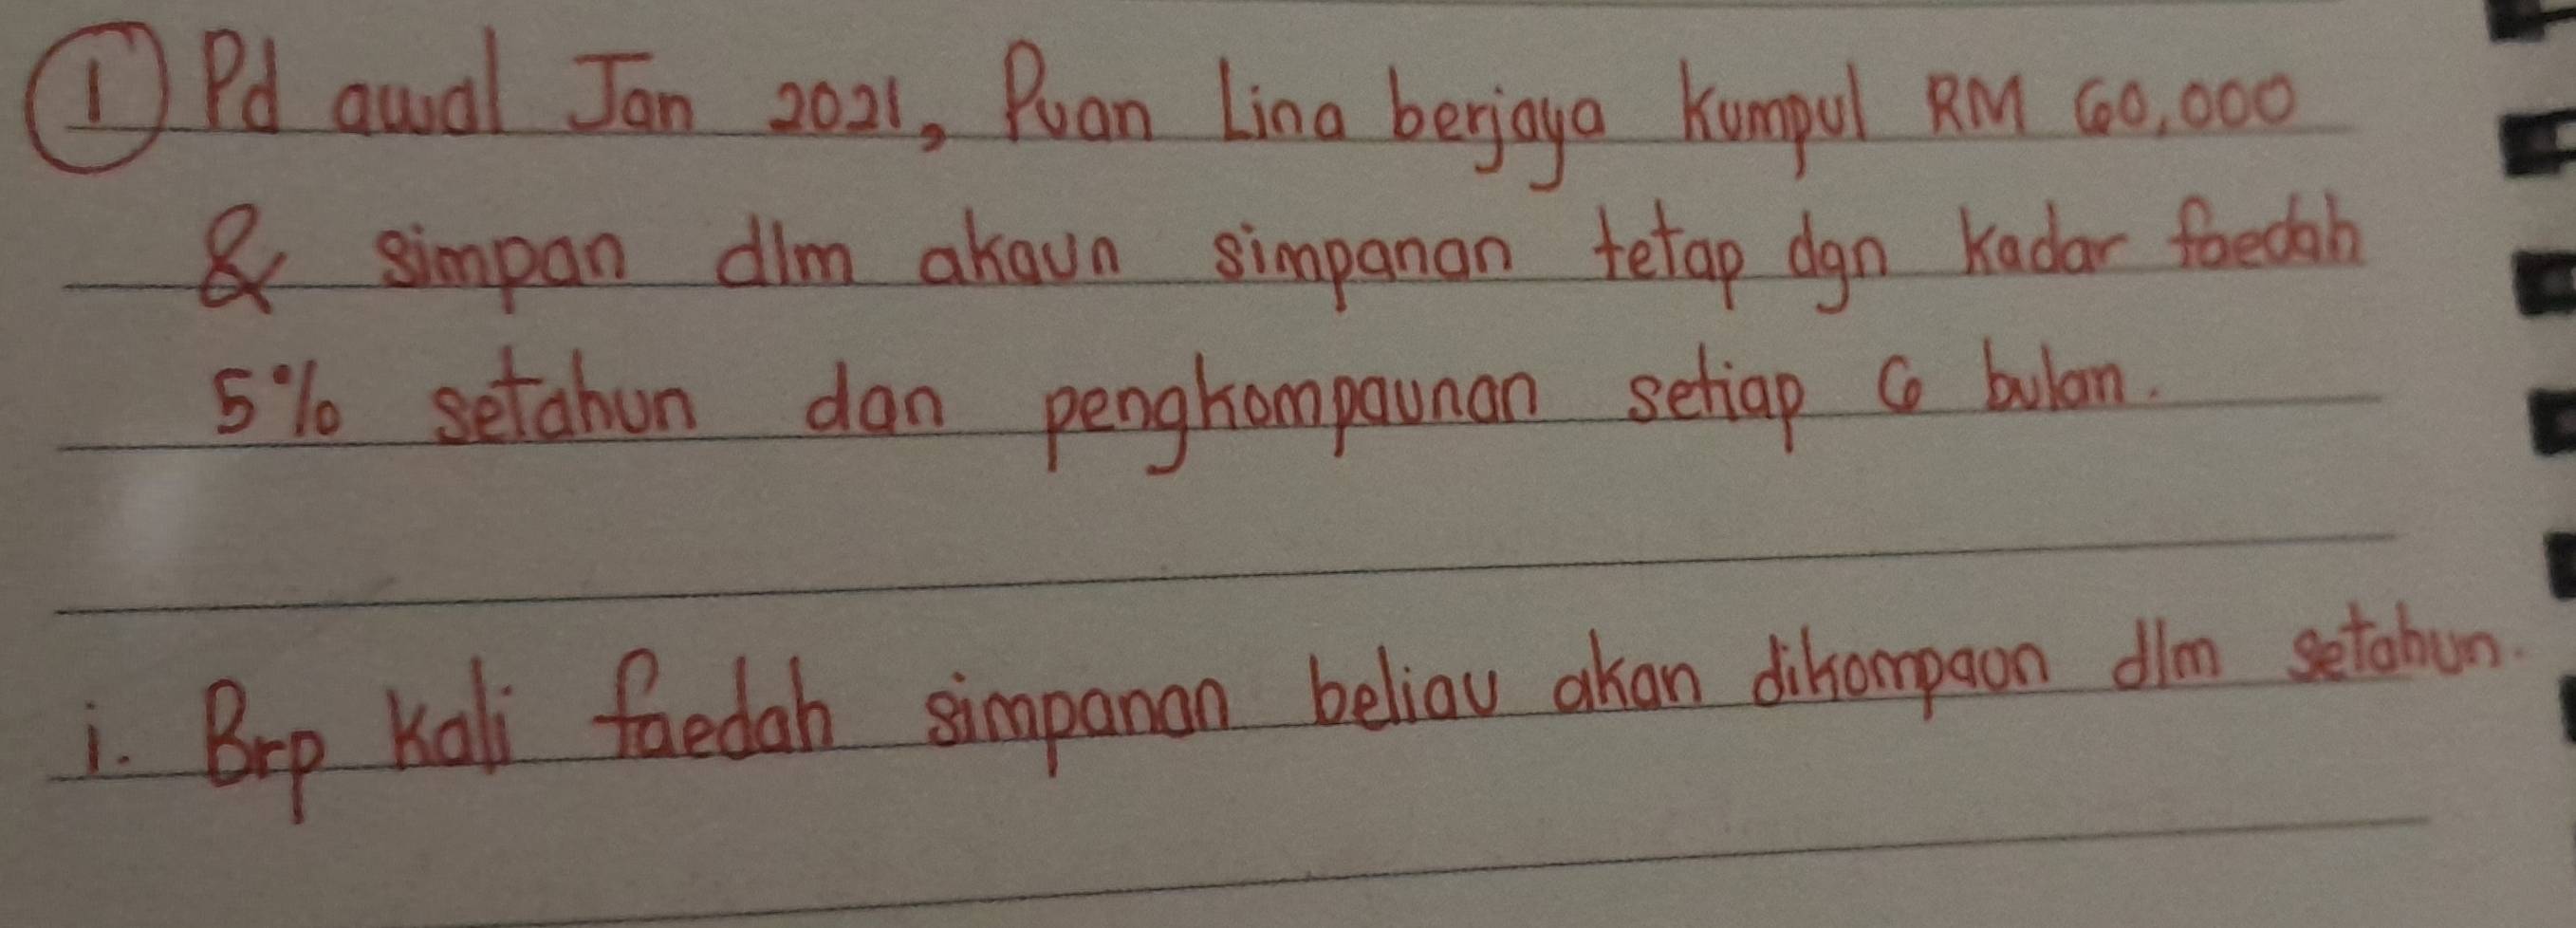 ① Pd awal Jan 2021, Puan Lina berjaya kumpul RM 60,000
& simpan dlm akaun simpanan tetap dgn kadar faedah
5% setahun dan pengkompaunan setiap 6 bulan.
i. Brp kali faedah simpanan beliau akan dikompaon dlm setahun.